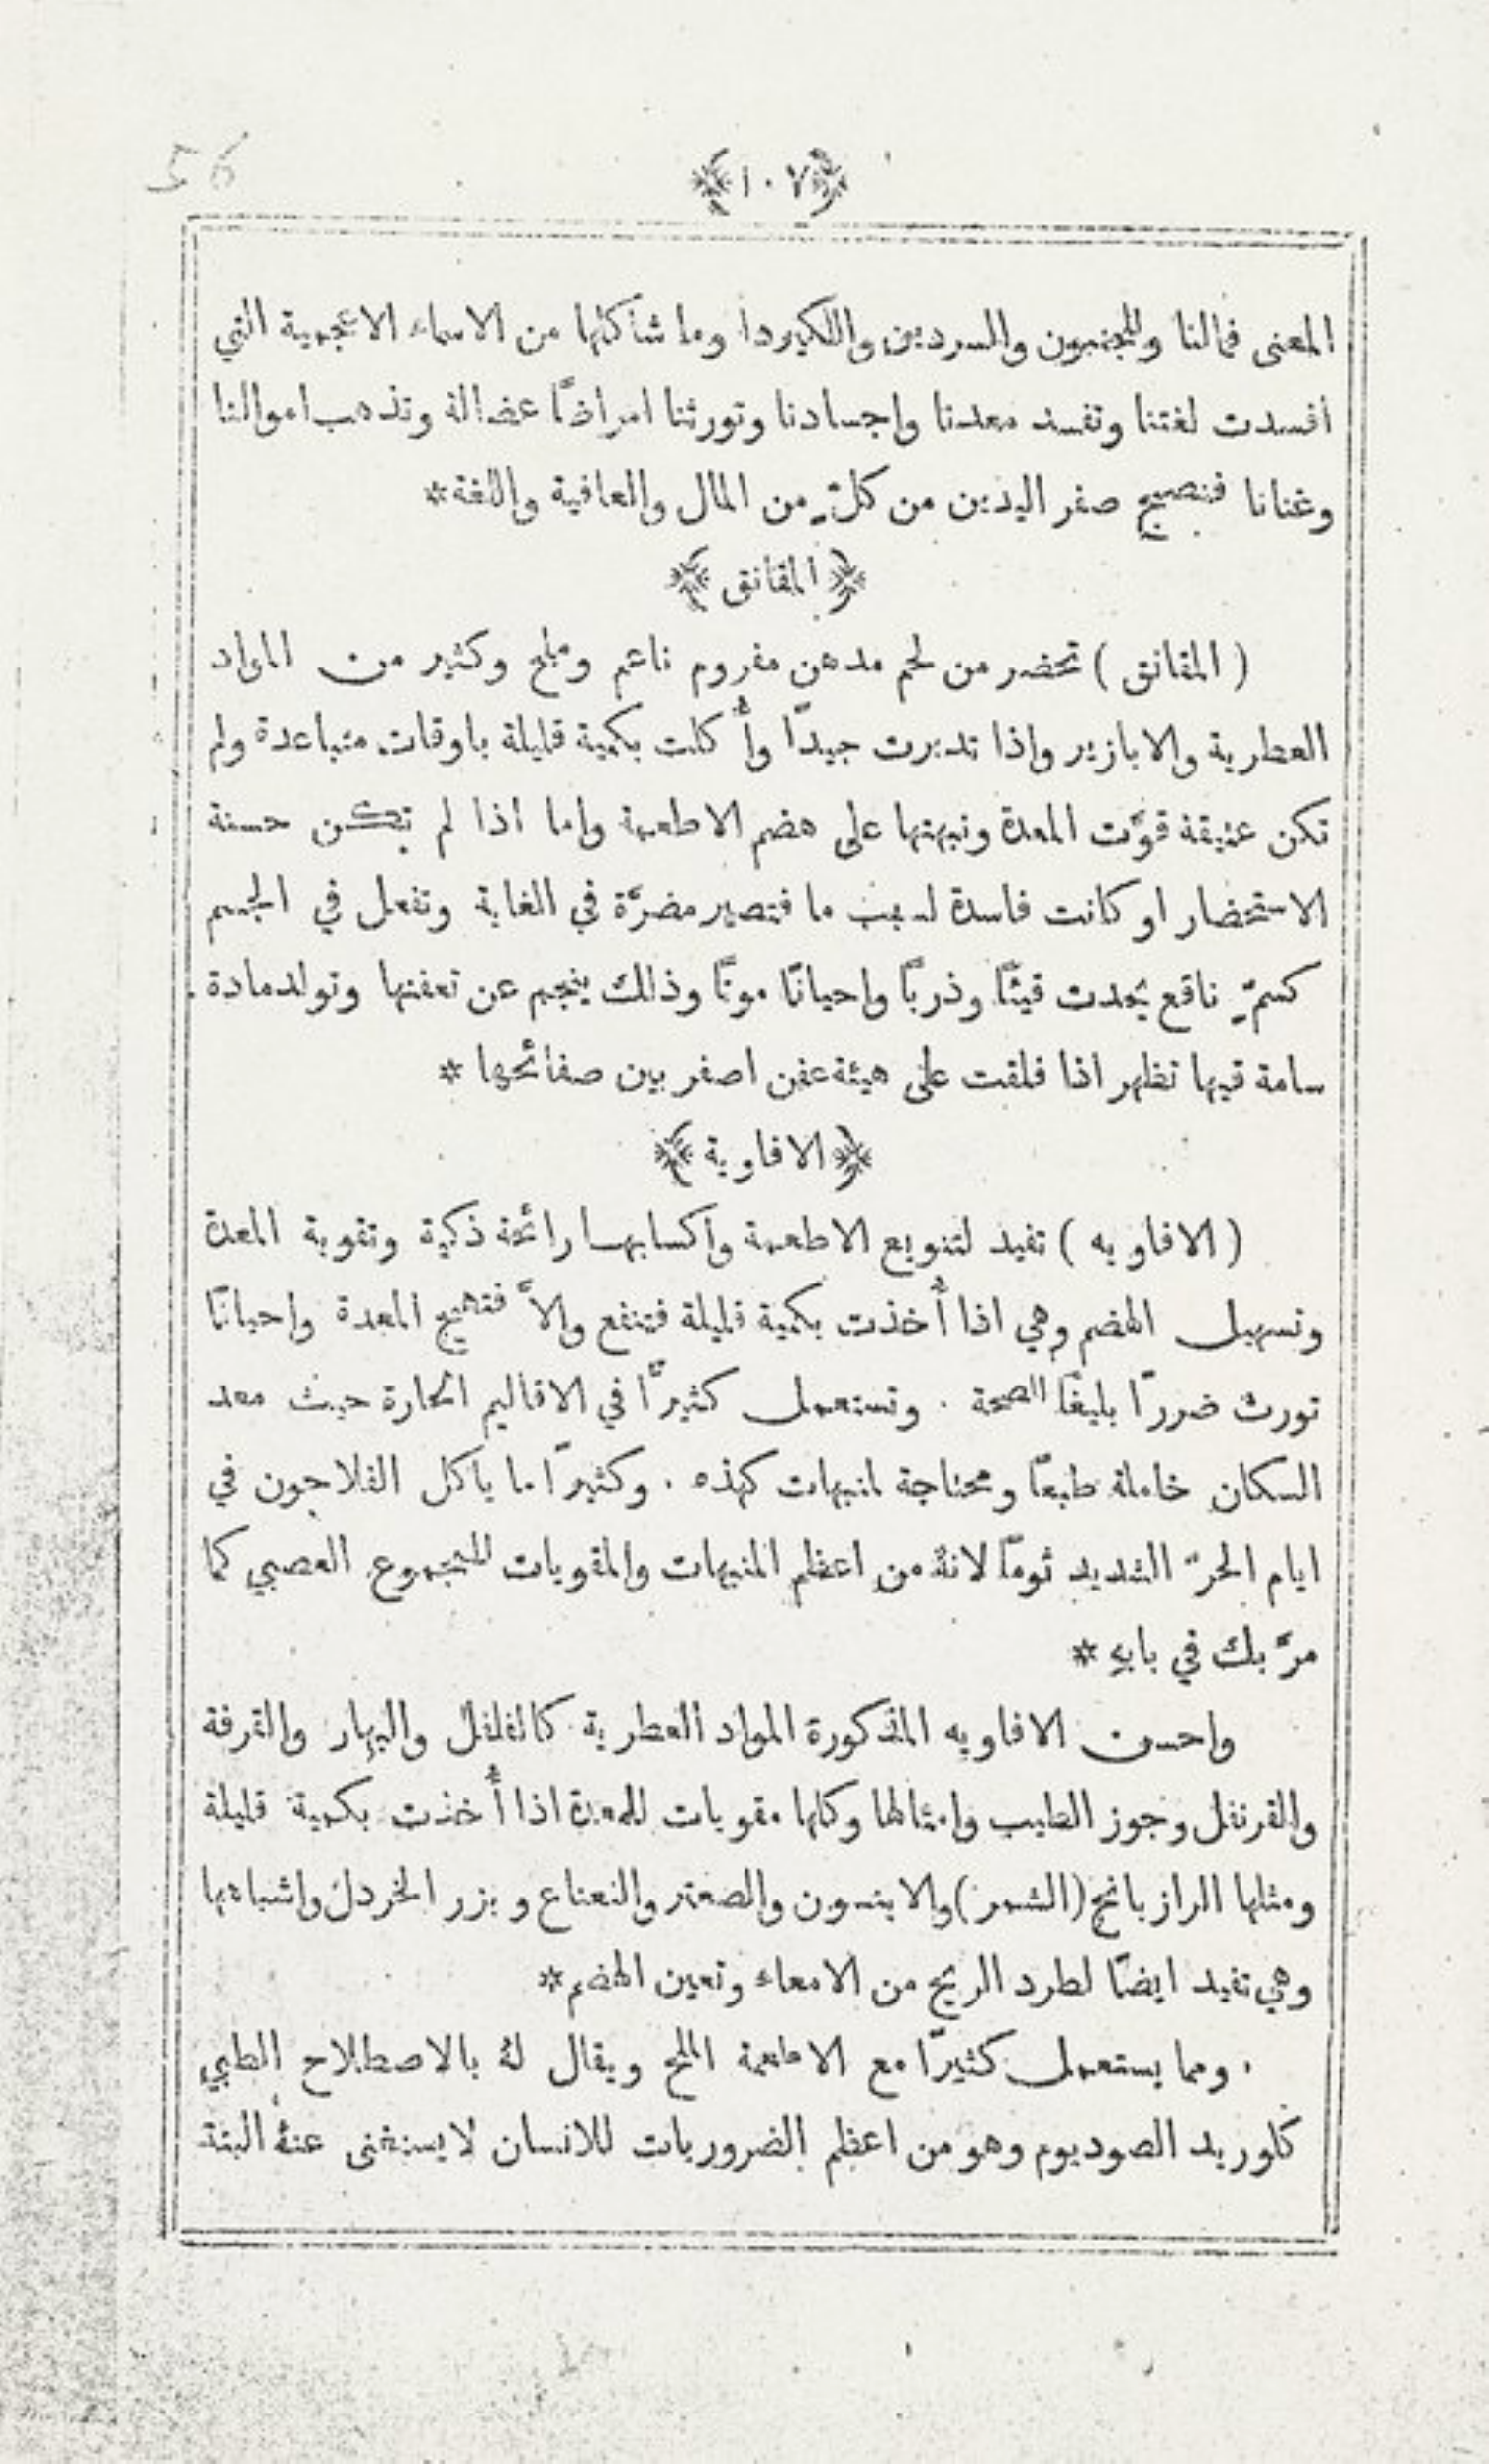 56
﴿١٠٧﴾
المعنى فمالنا وللجنبون والسردين واللكيردا وما شاكلها من الاسماء الاعجمية التي
افسدت لغتنا وتفسد معدنا واجسادنا وتورثنا امراضًا عضالة وتذهب اموالنا
وغنانا فنصبح صفر اليدين من كلٍّ من المال والعافية واللغة*
﴿المقانق﴾
( المقانق ) تحضر من لحم مدهن مفروم ناعم وملح وكثير من المواد
العطرية والابازير واذا تدبرت جيدًا وأُكلت بكمية قليلة باوقات متباعدة ولم
تكن عتيقة قوَّت المعدة ونبهتها على هضم الاطعمة واما اذا لم تكن حسنة
الاستحضار او كانت فاسدة لسبب ما فتصير مضرَّة في الغاية وتفعل في الجسم
كسمٍّ ناقع يحدث قيئًا وذربًا واحيانًا موتًا وذلك ينجم عن تعفنها وتولد مادة
سامة فيها تظهر اذا فلقت على هيئة عفن اصفر بين صفائحها *
﴿الافاوية﴾
( الافاويه ) تفيد لتنويع الاطعمة واكسابها رائحة ذكية وتقوية المعدة
وتسهيل الهضم وهي اذا أُخذت بكمية قليلة فتنفع والاَّ فتهيج المعدة واحيانًا
تورث ضررًا بليغًا الصحة . وتستعمل كثيرًا في الاقاليم الحارة حيث معد
السكان خاملة طبعًا ومحتاجة لمنبهات كهذه . وكثيرًا ما ياكل الفلاحون في
ايام الحرّ الشديد ثومًا لانهُ من اعظم المنبهات والمقويات للمجموع العصبي كما
مرَّ بك في بابهِ *
واحسن الافاويه المذكورة المواد العطرية كالفلفل والبهار والقرفة
والقرنفل وجوز الطيب وامثالها وكلها مقويات للمعدة اذا أُخذت بكمية قليلة
ومثلها الرازيانج (الشمر) والاينسون والصعتر والنعناع وبزر الخردل واشباهها
وهي تفيد ايضًا لطرد الريح من الامعاء وتعين الهضم*
ومما يستعمل كثيرًا مع الاطعمة الملح ويقال لهُ بالاصطلاح الطبي
كلوريد الصوديوم وهو من اعظم الضروريات للانسان لا يستغنى عنهُ البتة